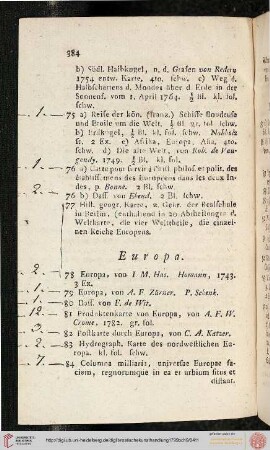 384
b) Südl. Halbkugel, n. d. Grafen von Redern
1754 entw. Karte, 4to. schw. c) Weg d.
Halbschattens d. Mondes über d. Erde in der
Sonnenf. vom 1. April 1764. ½ Bl. kl. fol.
schw.
1. 75 a) Reise der kön. (franz.) Schiffe Boudeuse
und Etoile um die Welt. ½ Bl. gr. fol. schw.
b) Erdkugel, ½ Bl. kl. fol. schw.
fr. 2 Ex. c) Afrika, Europa, Asia, 4to.
schw. d) Die alte Welt, von Rob. de Vaugondy.
1749. ½ Bl. kl. fol.
1. 76 a) Carte pour servir à l'hist. philos. et polit. des
établissemens des Européens dans les deux Indes,
p. Bonne. 2 Bl. schw.
76 b) Dass. von Ebend. 2 Bl. schw.
77 Hist. geogr. Karte, z. Gebr. der Realschule
in Berlin, (enthaltend in 20 Abtheilungen d.
Weltkarte, die vier Welttheile, die einzelnen
Reiche Europens.
Europa.
2. 78 Europa, von I. M. Has. Homann, 1743.
3 Ex.
1. 79 Europa, von A. F. Zürner. P. Schenk.
1. 80 Dass. von F. de Wit.
12. 81 Produktenkarte von Europa, von A. F. W.
Crome. 1782. gr. fol.
3. 82 Postkarte durch Europa, von C. A. Katzer.
2. 83 Hydrograph. Karte des nordwestlichen Europa.
kl. fol. schw.
7. 84 Columna milliaris, universae Europae faciem,
regnorumque in ea et urbium situs et
distant.